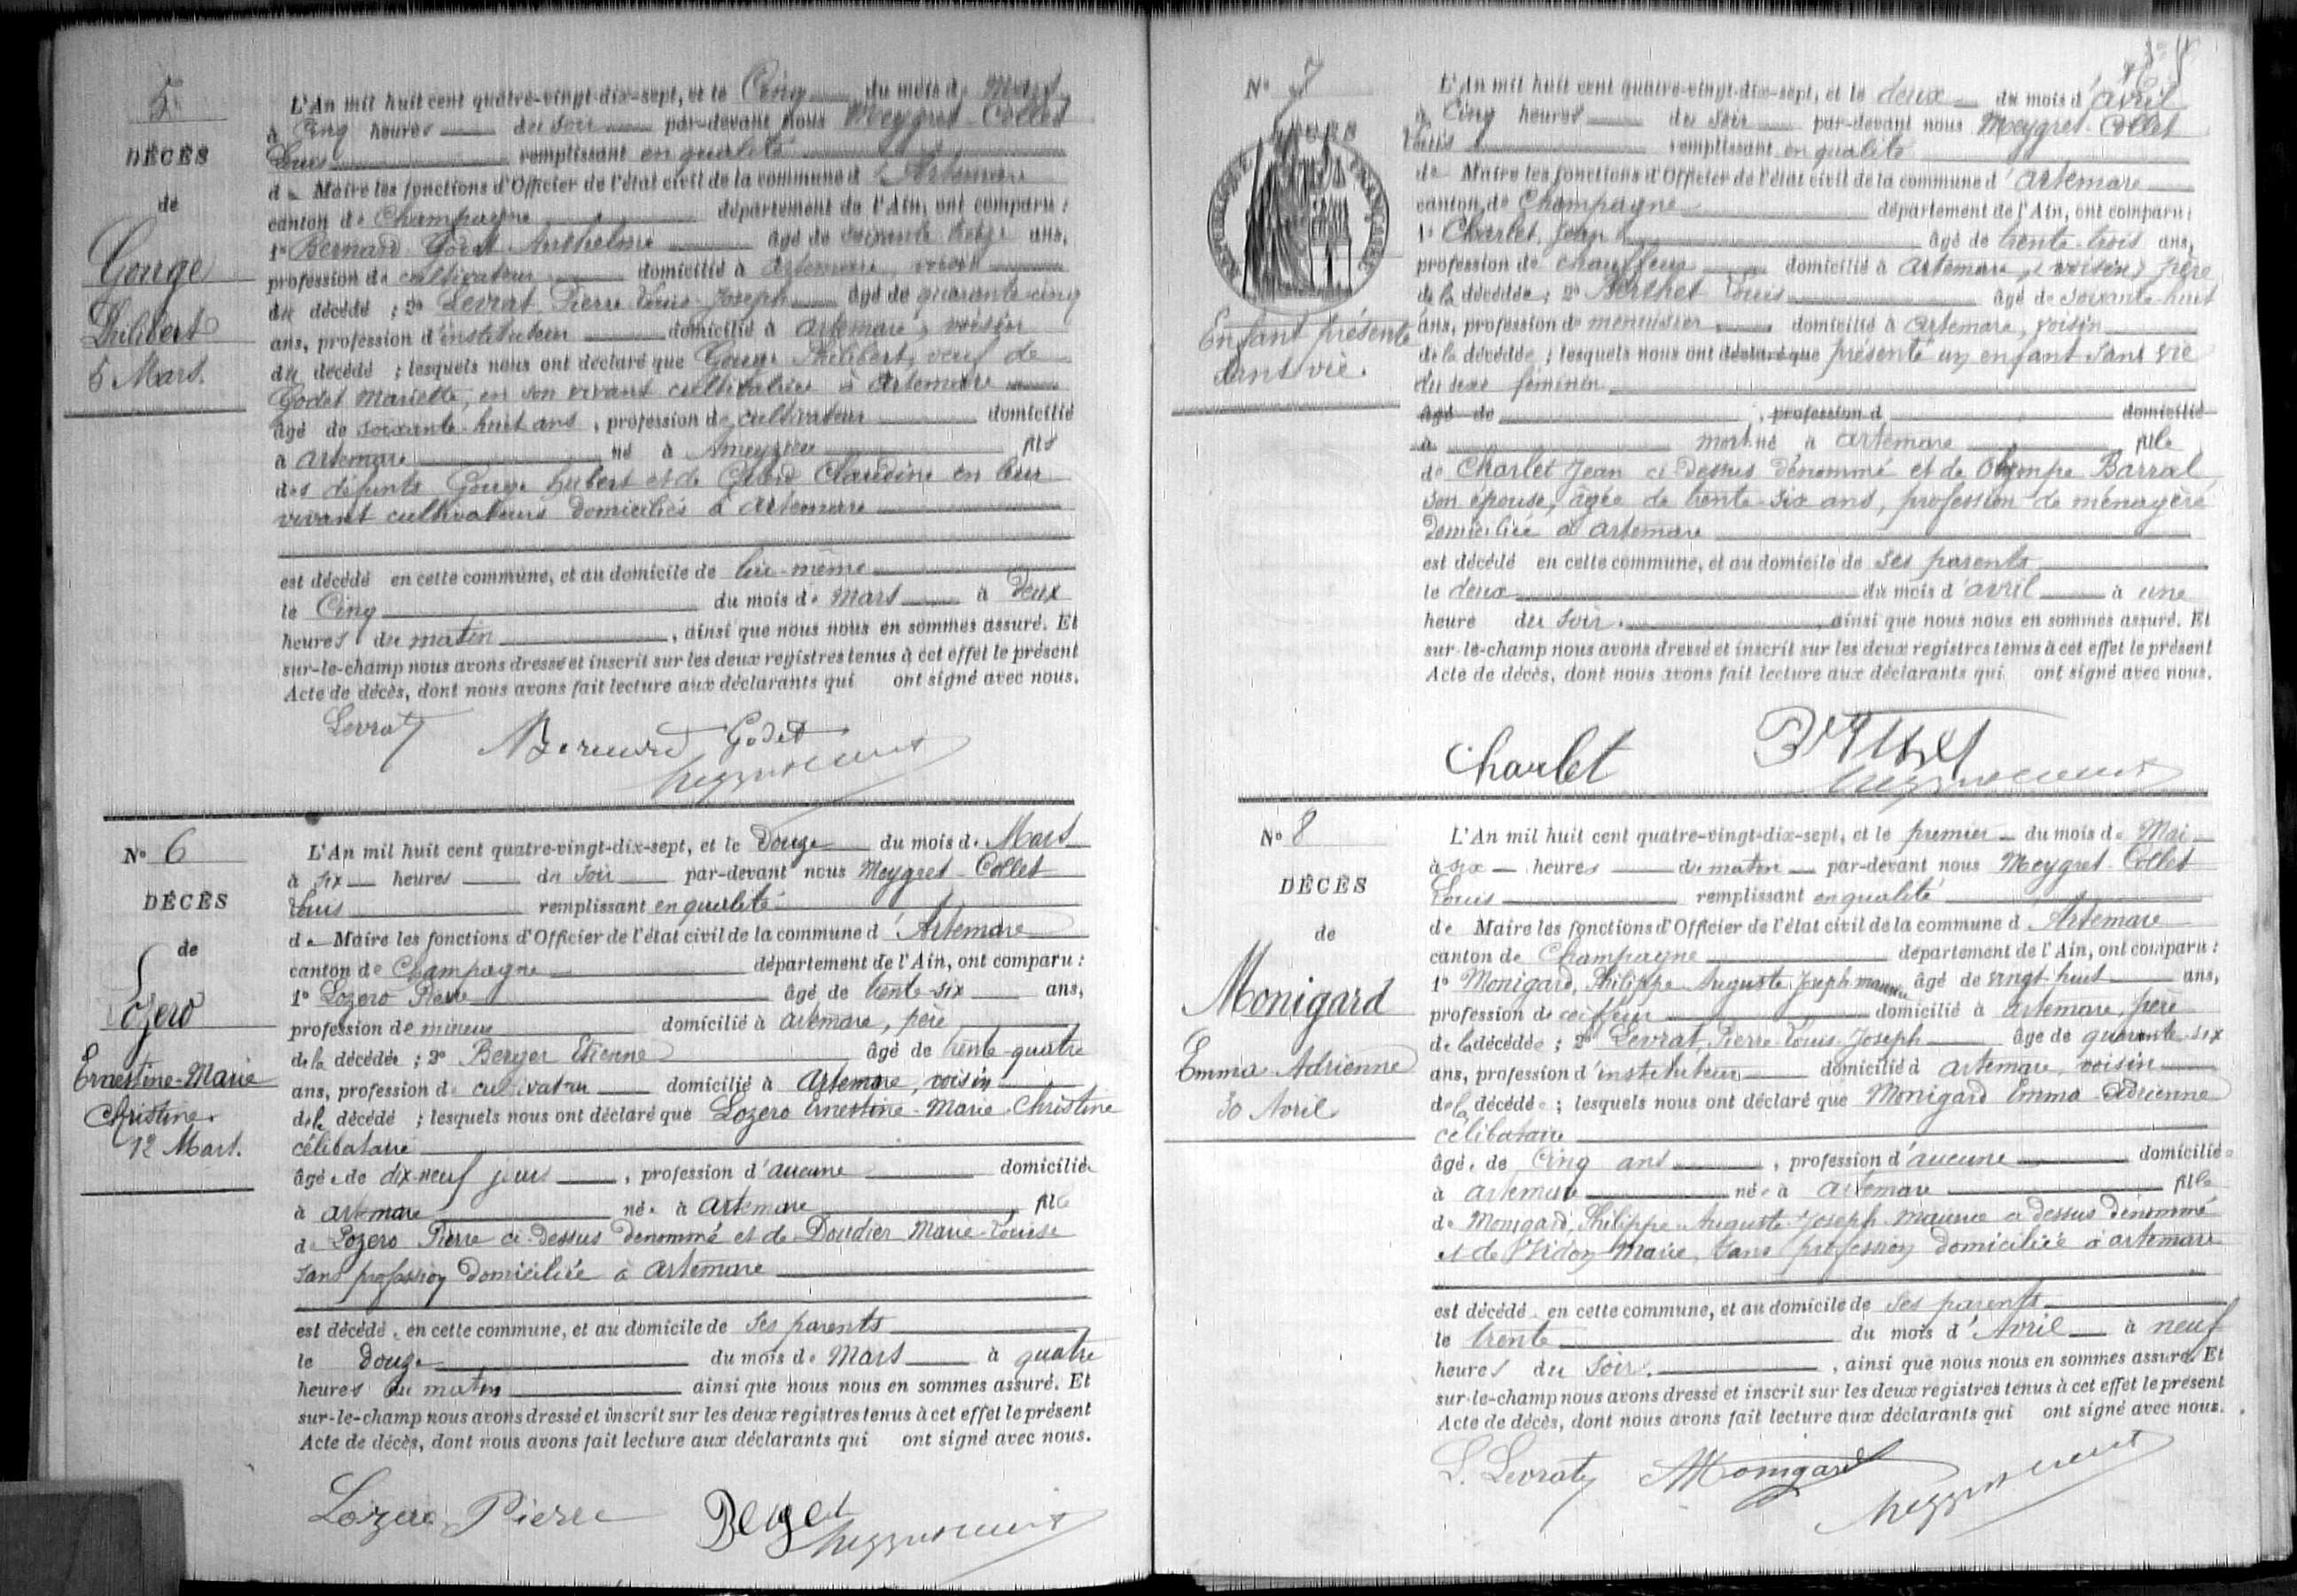 5
DÉCÈS
de
Gouge
Philibert
5 Mars.
L'An mil huit cent quatre-vingt-dix-sept, et le Cinq du mois de Mars
à Cinq heures du soir par-devant nous Meygret-Collet
Louis remplissant en qualité
de Maire les fonctions d'Officier de l'état civil de la commune d'Artemare
canton de Champagne département de l'Ain, ont comparu :
1° Bernard Godet Anthelme âgé de soixante treize ans,
profession de cultivateur domicilié à Artemare, voisin
du décédé ; 2° Levrat, Pierre Louis-Joseph âgé de quarante-cinq
ans, profession d'instituteur domicilié à Artemare, voisin
du décédé ; lesquels nous ont déclaré que Gouge Philibert, veuf de
Godet Mariette, en son vivant cultivateur à Artemare
âgé de soixante-huit ans, profession de cultivateur domicilié
à Artemare né à Ameyzieu fils
des défunts Gouge Hubert et de Claudine en leur
vivant cultivateurs domiciliés à Artemare
est décédé en cette commune, et au domicile de lui-même
le Cinq du mois de Mars à Deux
heures du matin, ainsi que nous nous en sommes assuré. Et
sur-le-champ nous avons dressé et inscrit sur les deux registres tenus à cet effet le présent
Acte de décès, dont nous avons fait lecture aux déclarants qui ont signé avec nous.
Levrat Bernard Godet
N° 6
DÉCÈS
de
Lozero
Ernestine-Marie
Christine.
12 Mars.
L'An mil huit cent quatre-vingt-dix-sept, et le Douze du mois de Mars
à six heures du soir par-devant nous Meygret-Collet
Louis remplissant en qualité
de Maire les fonctions d'Officier de l'état civil de la commune d'Artemare
canton de Champagne département de l'Ain, ont comparu :
1° Lozero Pierre âgé de trente-six ans,
profession de mineur domicilié à Artemare, père
de la décédée ; 2° Berger Etienne âgé de trente-quatre
ans, profession de cultivateur domicilié à Artemare, voisin
de la décédé ; lesquels nous ont déclaré que Lozero Ernestine-Marie Christine
célibataire
âgée de dix-neuf jours, profession d'aucune domiciliée
à Artemare née à Artemare fille
de Lozero Pierre ci-dessus dénommé et de Doudier Marie-Louise
sans profession domiciliée à Artemare
est décédée en cette commune, et au domicile de ses parents
le douze du mois de Mars à quatre
heures du matin ainsi que nous nous en sommes assuré. Et
sur-le-champ nous avons dressé et inscrit sur les deux registres tenus à cet effet le présent
Acte de décès, dont nous avons fait lecture aux déclarants qui ont signé avec nous.
Lozero Pierre Berger
N° 7
RÉPUBLIQUE FRANÇAISE
Enfant présenté
sans vie.
L'An mil huit cent quatre-vingt-dix-sept, et le deux du mois d'avril
à Cinq heures du soir par-devant nous Meygret-Collet
Louis remplissant en qualité
de Maire les fonctions d'Officier de l'état civil de la commune d'Artemare
canton de Champagne département de l'Ain, ont comparu :
1° Charlet, Jean âgé de trente-trois ans,
profession de chauffeur domicilié à Artemare, (voisin) père
de la décédée ; 2° Berthet Louis âgé de soixante-huit
ans, profession de menuisier domicilié à Artemare, voisin
de la décédée ; lesquels nous ont déclaré que présenté un enfant sans vie
du sexe féminin
âgé de, profession d domicilié
à mort-né à Artemare fille
de Charlet Jean ci-dessus dénommé et de Olympe Barral
son épouse, âgée de trente-six ans, profession de ménagère
domiciliée à Artemare
est décédé en cette commune, et au domicile de ses parents
le deux du mois d'avril à une
heure du soir. ainsi que nous nous en sommes assuré. Et
sur-le-champ nous avons dressé et inscrit sur les deux registres tenus à cet effet le présent
Acte de décès, dont nous avons fait lecture aux déclarants qui ont signé avec nous.
Charlet Berthet
N° 8
DÉCÈS
de
Monigard
Emma Adrienne
30 Avril.
L'An mil huit cent quatre-vingt-dix-sept, et le premier du mois de Mai
à six heures du matin par-devant nous Meygret-Collet
Louis remplissant en qualité
de Maire les fonctions d'Officier de l'état civil de la commune d'Artemare
canton de Champagne département de l'Ain, ont comparu :
1° Monigard, Philippe Auguste Joseph maurice âgé de vingt-huit ans,
profession de coiffeur domicilié à Artemare, père
de la décédée ; 2° Levrat, Pierre-Louis-Joseph âgé de quarante-six
ans, profession d'instituteur domicilié à Artemare, voisin
de la décédée ; lesquels nous ont déclaré que Monigard Emma Adrienne
célibataire
âgée de Cinq ans, profession d'aucune domiciliée
à Artemare née à Artemare fille
de Monigard, Philippe-Auguste-Joseph-maurice ci dessus dénommé
et de Marie, sans profession domiciliée à Artemare
est décédé en cette commune, et au domicile de ses parents
le trente du mois d'Avril à neuf
heures du soir., ainsi que nous nous en sommes assuré. Et
sur-le-champ nous avons dressé et inscrit sur les deux registres tenus à cet effet le présent
Acte de décès, dont nous avons fait lecture aux déclarants qui ont signé avec nous.
L. Levrat Monigard